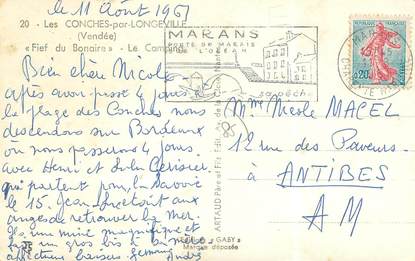 le 11 Août 1961
20 - Les CONCHES-par-LONGEVILLE
(Vendée)
« Fief du Bonaire » - Le Camping
Bien chère Nicole
après avoir passé 4 jours à
la plage des Conches nous
descendons sur Bordeaux
où nous passerons 4 jours
avec Henri et
qui partent pour la Savoie
le 15. Jean était aux
anges de retrouver la Mer.
Ils ont mine magnifique et
font un gros bis à
affectueux baisers Germaine André
MARANS
PORTE DU MARAIS
DE L'OCEAN
sa pêche
MARANS
CHARENTE MARITIME
REPUBLIQUE FRANÇAISE
0,20
85
Mme Merle MACEL
12 rue des Paveurs
à ANTIBES
AM
ARTAUD Père et Fils Edit.
"GABY"
Marque déposée